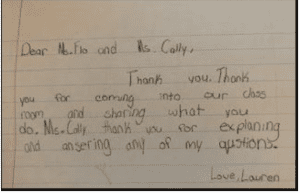 Dear Ms. Flo and Ms. Cally,
Thank you. Thank
you for coming into our class
room and sharing what you
do. Ms. Cally thank you for explaning
and ansering any of my qustions.
Love, Lauren